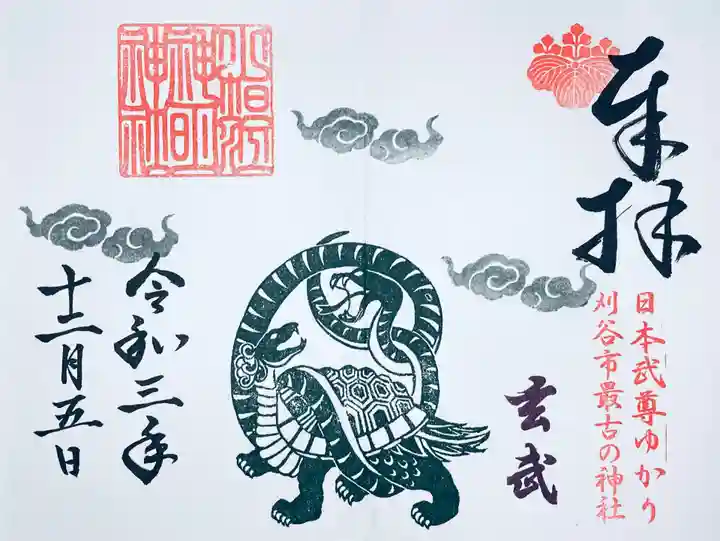 奉拝
日本武尊ゆかり
刈谷市最古の神社
玄武
令和三年
十二月五日